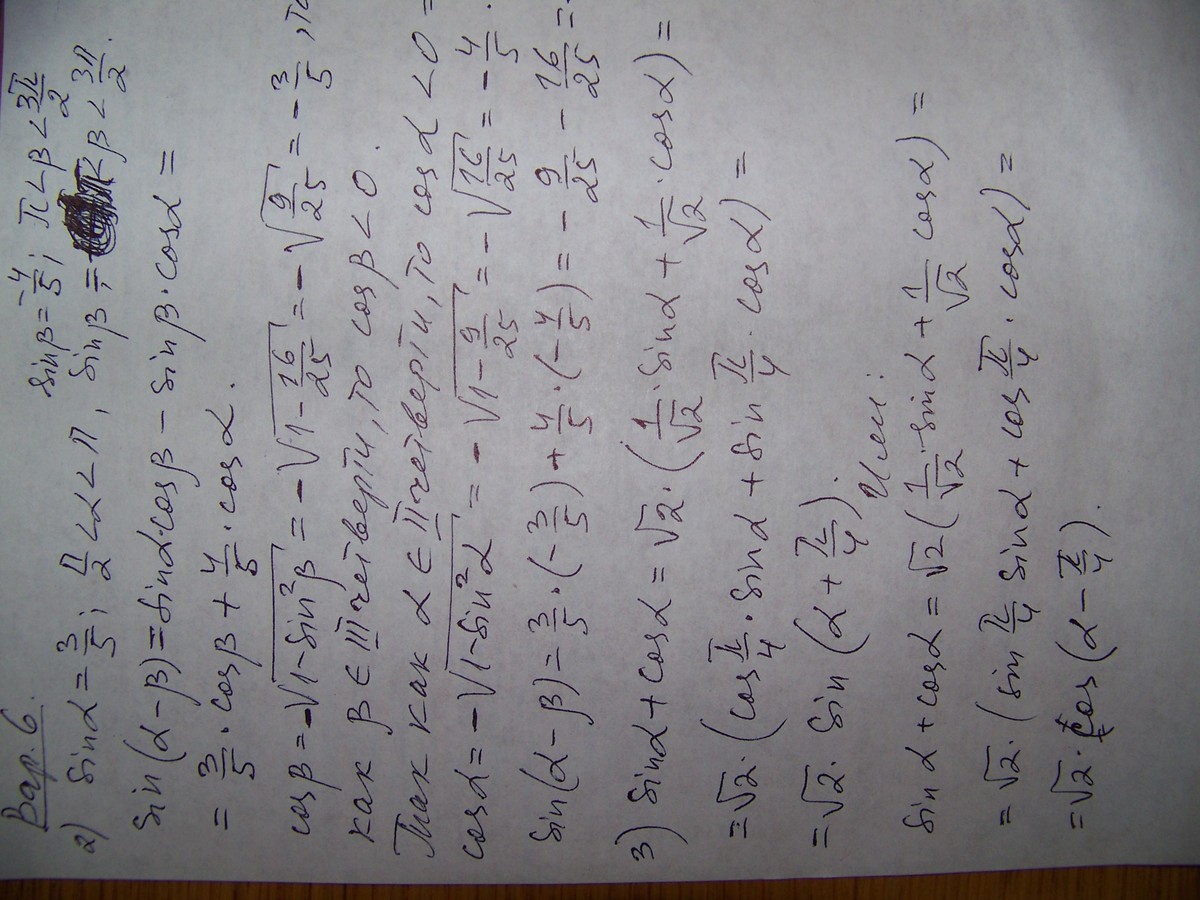 Вар. 6
sinβ = -4/5; π < β < 3π/2
2) sinα = 3/5; π/2 < α < π, sinβ = < β < 3π/2.
sin(α-β) = sinα·cosβ - sinβ·cosα =
= 3/5 · cosβ + 4/5 · cosα.
cosβ = -√(1-sin²β) = -√(1-16/25) = -√(9/25) = -3/5, то
как β ∈ III четверти, то cosβ < 0.
Так как α ∈ II четверти, то cosα < 0 =
cosα = -√(1-sin²α) = -√(1-9/25) = -√(16/25) = -4/5.
sin(α-β) = 3/5 · (-3/5) + 4/5 · (-4/5) = -9/25 - 16/25 =
3) sinα + cosα = √2 · (1/√2 · sinα + 1/√2 · cosα) =
= √2 · (cos π/4 · sinα + sin π/4 · cosα) =
= √2 · sin(α + π/4).
Или:
sinα + cosα = √2 (1/√2 · sinα + 1/√2 cosα) =
= √2 · (sin π/4 sinα + cos π/4 · cosα) =
= √2 · cos(α - π/4).